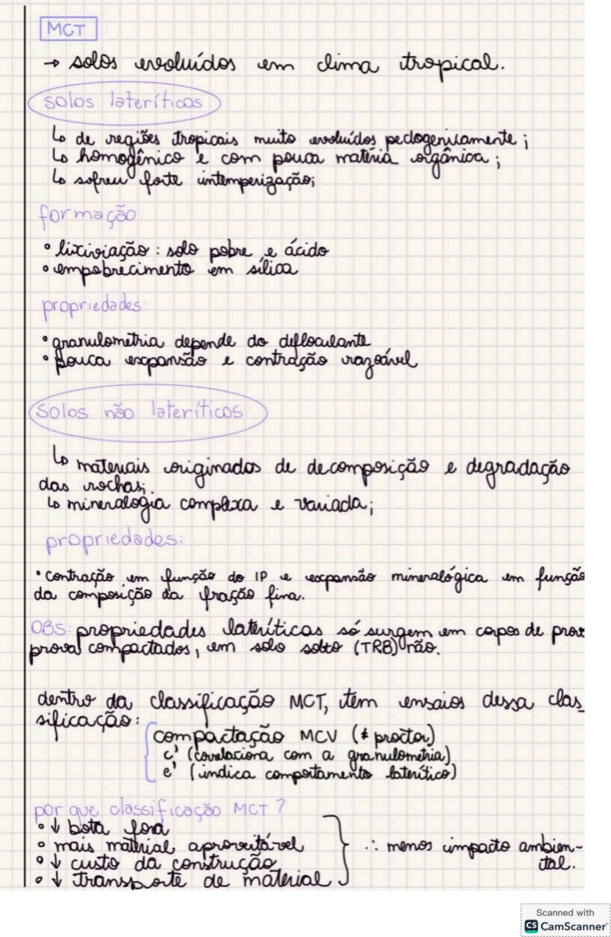 MCT
→ solos evoluídos em clima tropical.
solos lateríticos
↳ de regiões tropicais muito evoluídos pedogenicamente;
↳ homogênico e com pouca matéria orgânica;
↳ sofreu forte intemperização;
formação
• lixiviação: solo pobre e ácido
• empobrecimento em sílica
propriedades:
• granulometria depende do defloculante
• pouca expansão e contração razoável
solos não lateríticos
↳ materiais originados de decomposição e degradação
das rochas;
↳ mineralogia complexa e variada;
propriedades:
• contração em função do IP e expansão mineralógica em função
da composição da fração fina.
OBS: propriedades lateríticas só surgem em corpos de prov
prova compactados, em solo solto (TRB) não.
dentro da classificação MCT, tem ensaios dessa clas_
sificação:
compactação MCV (≠ proctor)
c' (correlaciona com a granulometria)
e' (indica comportamento laterítico)
por que classificação MCT?
• ↓ bota fora
• mais material aproveitável
• ↓ custo da construção
• ↓ transporte de material
∴ menos impacto ambien-
tal.
Scanned with
CS CamScanner